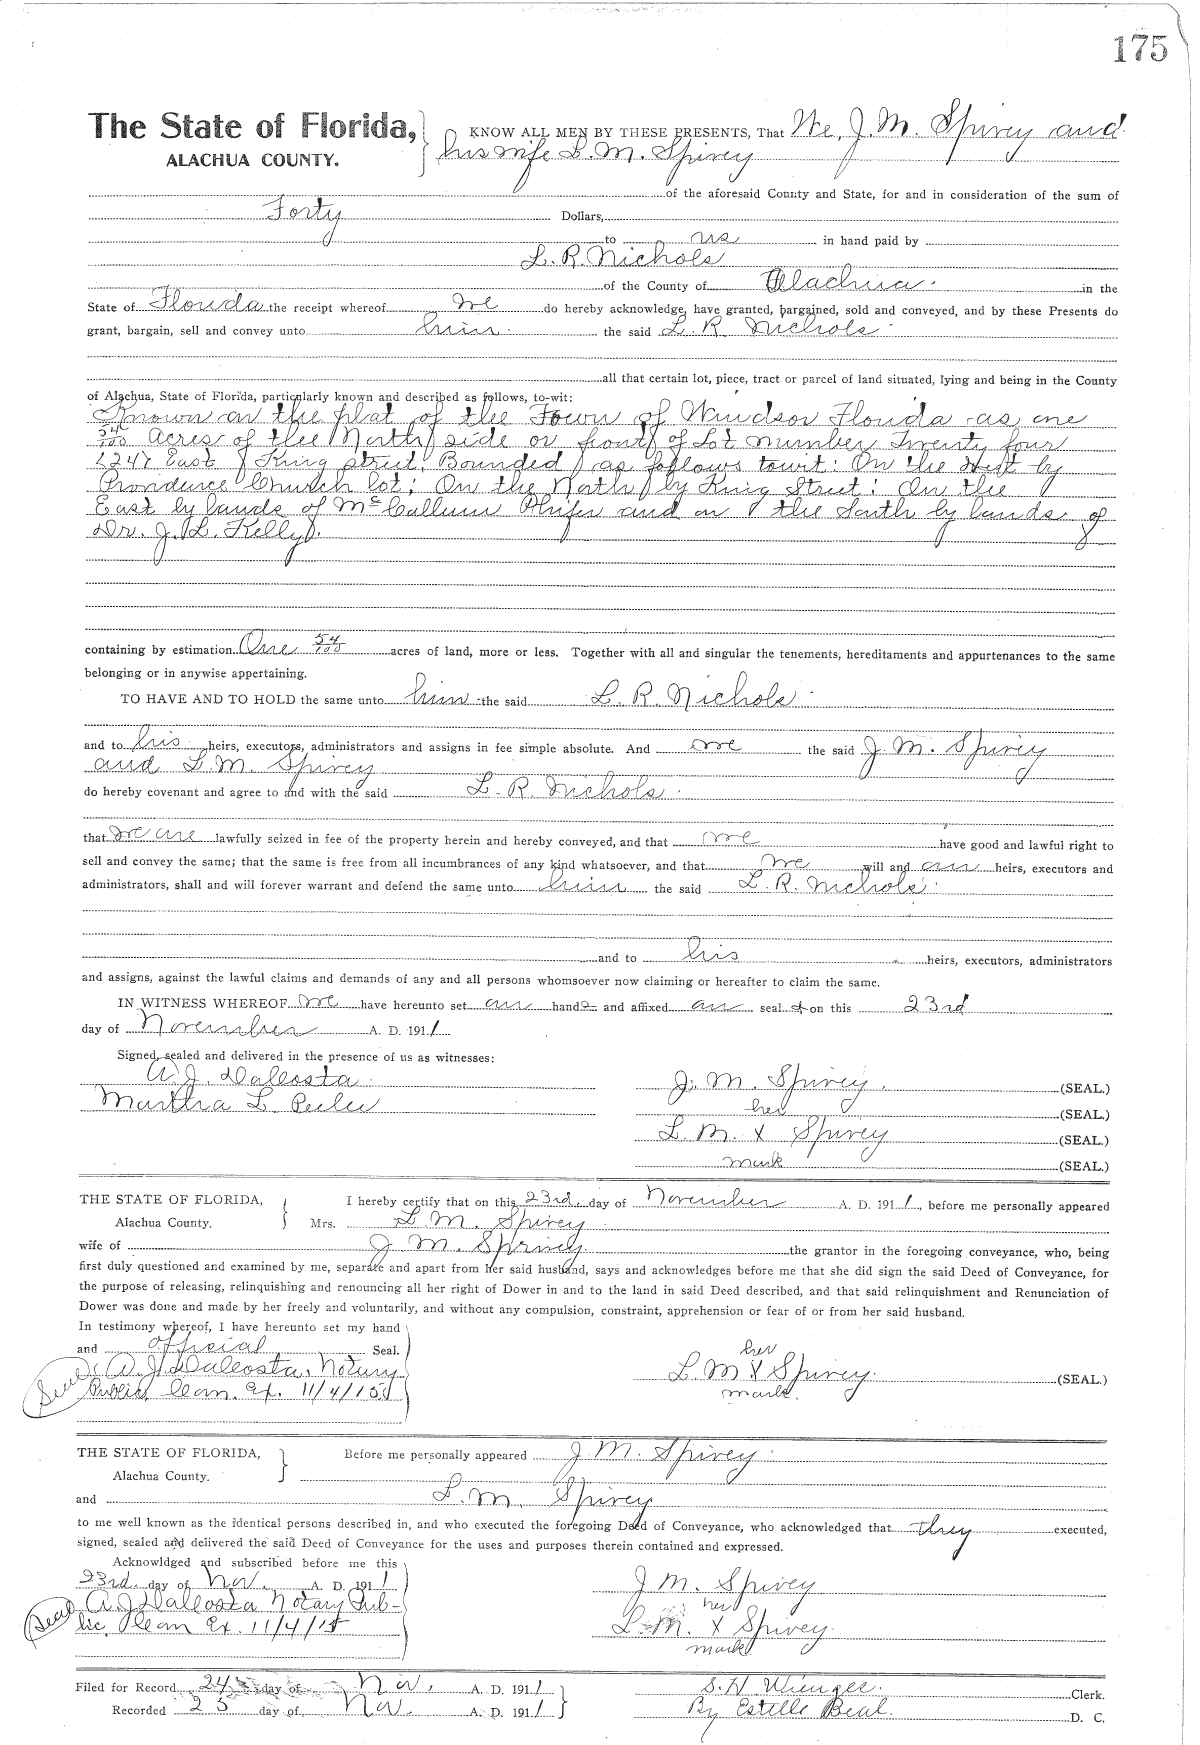 175
The State of Florida, KNOW ALL MEN BY THESE PRESENTS, That We, J. M. Spirey and
ALACHUA COUNTY. his wife L. M. Spirey
of the aforesaid County and State, for and in consideration of the sum of
Forty Dollars,
to us in hand paid by
L. R. Nichols
of the County of Alachua. in the
State of Florida the receipt whereof we do hereby acknowledge, have granted, bargained, sold and conveyed, and by these Presents do
grant, bargain, sell and convey unto him the said L R Nichols
all that certain lot, piece, tract or parcel of land situated, lying and being in the County
of Alachua, State of Florida, particularly known and described as follows, to-wit:
Known on the plat of the Town of Windsor Florida as one
54/100 acres of the North side or front of Lot number Twenty four
(24) East of King street. Bounded as follows towit: On the West by
Providence Church lot; On the North by King Street; On the
East by lands of McCallum Phifer and on the South by lands of
Dr. J. L. Kelly.
containing by estimation One 54/100 acres of land, more or less. Together with all and singular the tenements, hereditaments and appurtenances to the same
belonging or in anywise appertaining.
TO HAVE AND TO HOLD the same unto him the said L. R. Nichols
and to his heirs, executors, administrators and assigns in fee simple absolute. And we the said J. M. Spirey
and L. M. Spirey
do hereby covenant and agree to and with the said L. R. Nichols
that we are lawfully seized in fee of the property herein and hereby conveyed, and that we have good and lawful right to
sell and convey the same; that the same is free from all incumbrances of any kind whatsoever, and that we will and our heirs, executors and
administrators, shall and will forever warrant and defend the same unto him the said L. R. Nichols
and to his heirs, executors, administrators
and assigns, against the lawful claims and demands of any and all persons whomsoever now claiming or hereafter to claim the same.
IN WITNESS WHEREOF we have hereunto set our hands and affixed our seal s on this 23rd
day of November A. D. 1911
Signed, sealed and delivered in the presence of us as witnesses:
A. J. DaCosta J. M. Spirey. (SEAL.)
Martha L. her (SEAL.)
L. M. X Spirey (SEAL.)
mark (SEAL.)
THE STATE OF FLORIDA, I hereby certify that on this 23rd day of November A. D. 1911, before me personally appeared
Alachua County. Mrs. L. M. Spirey
wife of J. M. Spirey the grantor in the foregoing conveyance, who, being
first duly questioned and examined by me, separate and apart from her said husband, says and acknowledges before me that she did sign the said Deed of Conveyance, for
the purpose of releasing, relinquishing and renouncing all her right of Dower in and to the land in said Deed described, and that said relinquishment and Renunciation of
Dower was done and made by her freely and voluntarily, and without any compulsion, constraint, apprehension or fear of or from her said husband.
In testimony whereof, I have hereunto set my hand
and official Seal. her
Seal A. J. DaCosta, Notary L. M X Spirey. (SEAL.)
Public, Com. Ex. 11/4/15 mark.
THE STATE OF FLORIDA, Before me personally appeared J. M. Spirey
Alachua County.
and L. M. Spirey
to me well known as the identical persons described in, and who executed the foregoing Deed of Conveyance, who acknowledged that they executed,
signed, sealed and delivered the said Deed of Conveyance for the uses and purposes therein contained and expressed.
Acknowldged and subscribed before me this
23rd day of Nov. A. D. 1911 J M. Spirey
Seal A. J DaCosta Notary Pub- her
lic, Com Ex. 11/4/15 L. M. X Spirey.
mark
Filed for Record 24 day of Nov. A. D. 1911 S. H. Wienges. Clerk.
Recorded 25 day of Nov. A. D. 1911 By Estelle Beal. D. C.